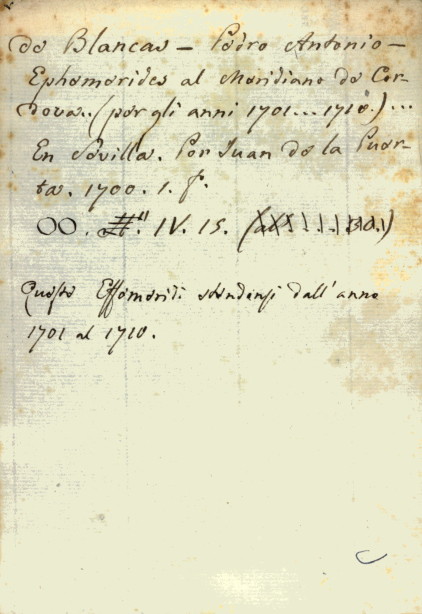 de Blancas – Pedro Antonio –
Ephemerides al Meridiano de Cor-
dova.. (per gli anni 1701 ... 1710.) ...
En Sevilla. Por Juan de la Puer-
ta. 1700. 1. f.
OO. #." IV. 15.
Queste Effemeridi stendensi dall'anno
1701 al 1710.